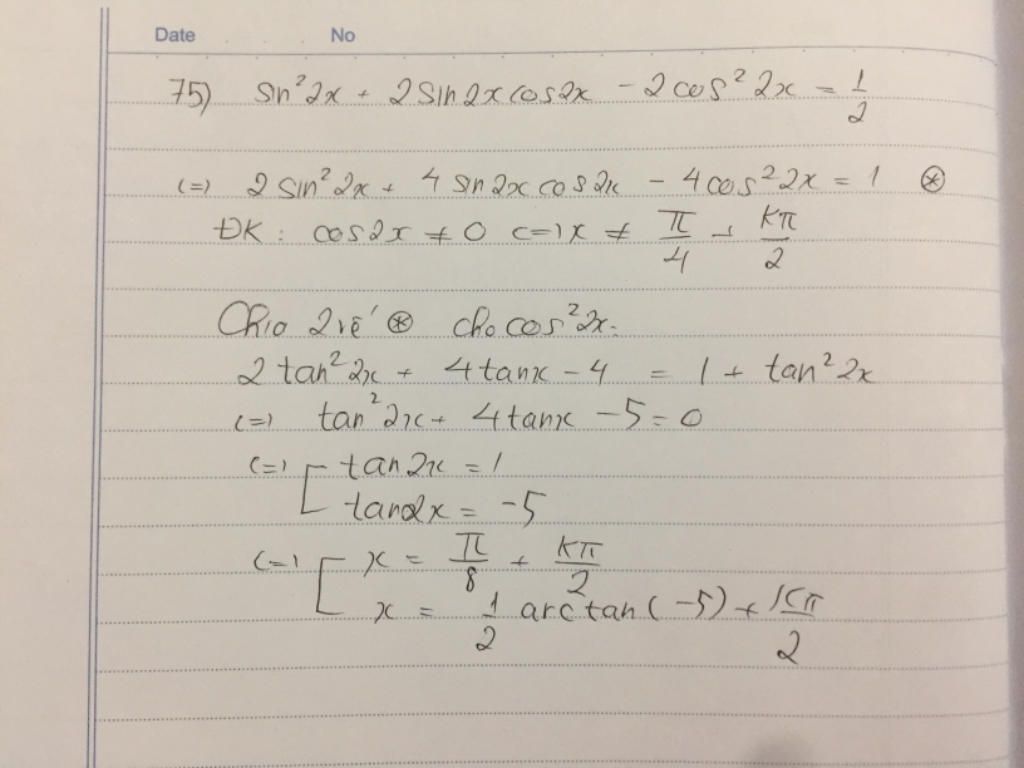 Date No
75) sin²2x + 2sin2xcos2x - 2cos²2x = 1/2
(=) 2sin²2x + 4sin2xcos2x - 4cos²2x = 1 ⊛
ĐK: cos2x ≠ 0 (=) x ≠ π/4 + kπ/2
Chia 2 vế ⊛ cho cos²2x.
2tan²2x + 4tanx - 4 = 1 + tan²2x
(=) tan²2x + 4tanx - 5 = 0
(=) [ tan2x = 1
tan2x = -5
(=) [ x = π/8 + kπ/2
x = 1/2 arctan(-5) + kπ/2